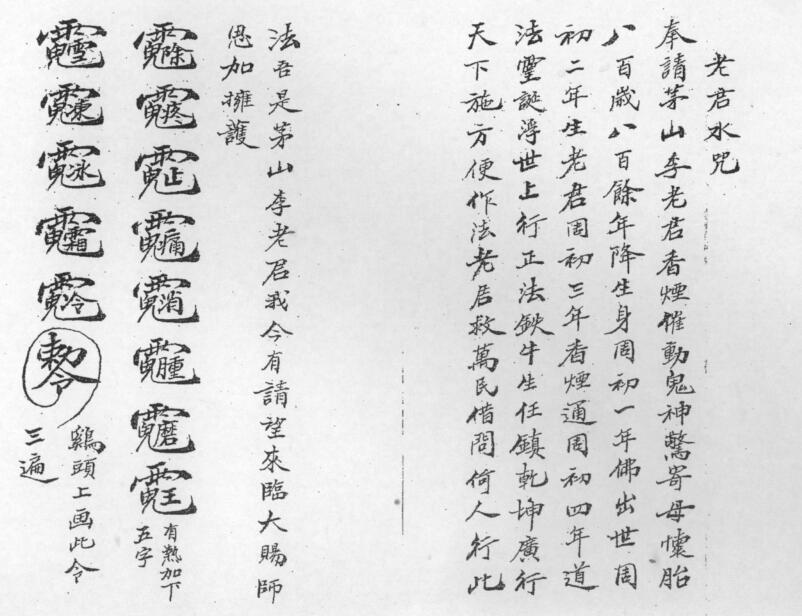 老君水咒
奉請茅山李老君香煙催動鬼神驚寄母懷胎
八百歲八百餘年降生身周初一年佛出世周
初二年生老君周初三年香煙通周初四年道
法靈誕浮世上行正法牛生任鎮乾坤廣行
天下施方便作法老君救萬民借問何人行此
法吾是茅山李老君我今有請望來臨大賜師
恩加擁護
有熱加下
五字
勅令
鷄頭上画此令
三遍